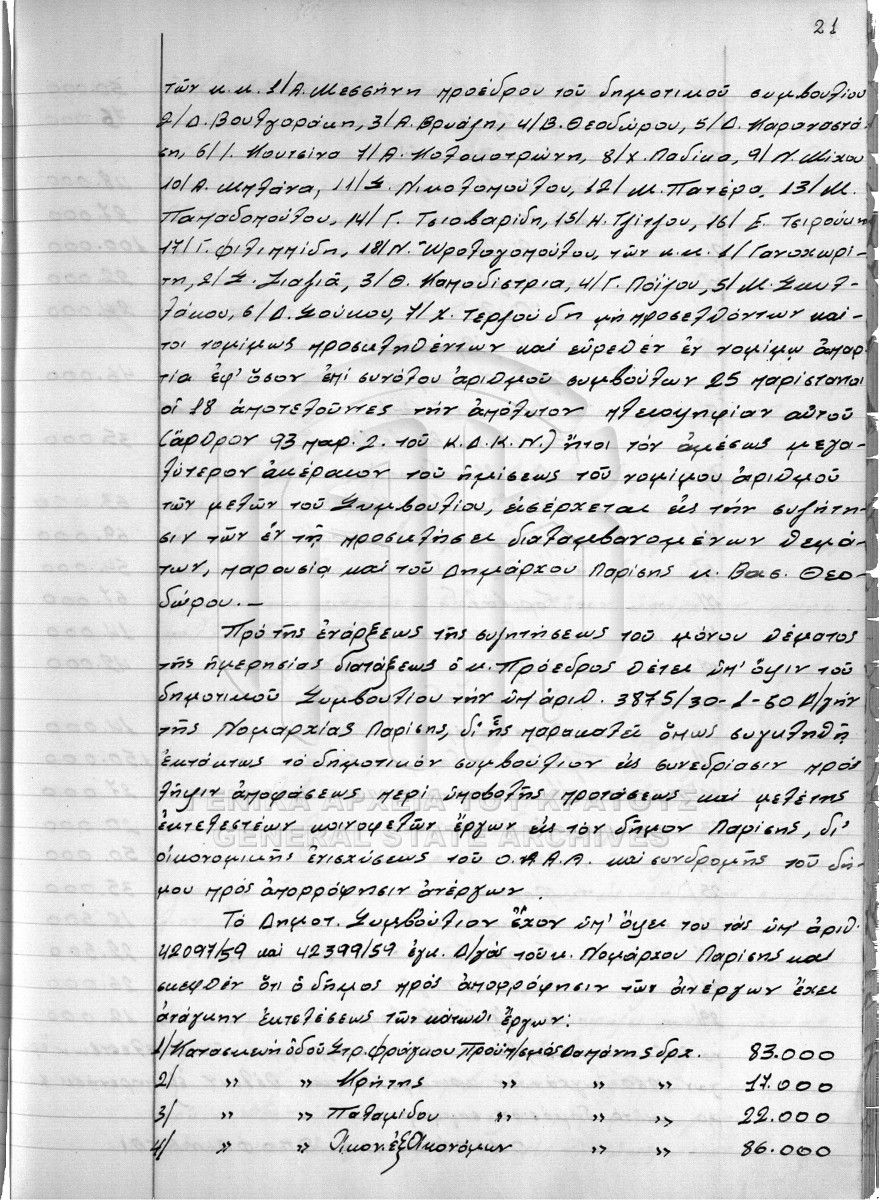 21
τῶν κ.κ. 1/Α. Μεσσήνη προέδρου τοῦ δημοτικοῦ συμβουλίου
2/Δ. Βουλγαράκη, 3/Α. Βρυάλη, 4/Β. Θεοδώρου, 5/Δ. Καραναστά-
ση, 6/Ι. Κουτσίνα 7/Α. Κολοκοτρώνη, 8/Χ. Λαδίκα, 9/Ν. Μίχου
10/Α. Μπλάνα, 11/Σ. Νικολοπούλου, 12/Μ. Πατέρα, 13/Μ.
Παπαδοπούλου, 14/Γ. Τσιοβαρίδη, 15/Η. Τζίτζου, 16/Ε. Τσιρούκη
17/Γ. Φιλιππίδη, 18/Ν. Ὡρολογοπούλου, τῶν κ.κ. 1/Γανοχωρί-
τη, 2/Σ. Ζιαζιᾶ, 3/Θ. Καποδίστρια, 4/Γ. Ρόϊζου, 5/Μ. Σκυλ-
λάκου, 6/Δ. Σούκου, 7/Χ. Τερζούδη μή προσελθόντων καί-
τοι νομίμως προσκληθέντων καί εὑρεθέν ἐν νομίμῳ ἀπαρ-
τία ἐφ' ὅσον ἐπί συνόλου ἀριθμοῦ συμβούλων 25 παρίστανται
οἱ 18 ἀποτελοῦντες τήν ἀπόλυτον πλειοψηφίαν αὐτοῦ
(ἄρθρον 93 παρ. 2. τοῦ Κ.Δ.Κ.Ν.) ἤτοι τόν ἀμέσως μεγα-
λύτερον ἀκέραιον τοῦ ἡμίσεως τοῦ νομίμου ἀριθμοῦ
τῶν μελῶν τοῦ Συμβουλίου, εἰσέρχεται εἰς τήν συζήτη-
σιν τῶν ἐν τῇ προσκλήσει διαλαμβανομένων θεμά-
των, παρουσίᾳ καί τοῦ Δημάρχου Λαρίσης κ. Βασ. Θεο-
δώρου.—
Πρό τῆς ἐνάρξεως τῆς συζητήσεως τοῦ μόνου θέματος
τῆς ἡμερησίας διατάξεως ὁ κ. Πρόεδρος θέτει ὑπ' ὄψιν τοῦ
δημοτικοῦ Συμβουλίου τήν ὑπ' ἀριθ. 3875/30-1-60 Δ/γήν
τῆς Νομαρχίας Λαρίσης, δι' ἧς παρακαλεῖ ὅπως συγκληθῇ
ἐκτάκτως τό δημοτικόν συμβούλιον εἰς συνεδρίασιν πρός
λῆψιν ἀποφάσεως περί ὑποβολῆς προτάσεως καί μελέτης
ἐκτελεστέων κοινοφελῶν ἔργων εἰς τόν δῆμον Λαρίσης, δι'
οἰκονομικῆς ἐνισχύσεως τοῦ Ο.Α.Α.Α. καί συνδρομῆς τοῦ δή-
μου πρός ἀπορρόφησιν ἀνέργων.
Τό Δημοτ. Συμβούλιον ἔχον ὑπ' ὄψει του τάς ὑπ' ἀριθ.
42097/59 καί 42399/59 ἐγκ. Δ/γάς τοῦ κ. Νομάρχου Λαρίσης καί
σκεφθέν ὅτι ὁ δῆμος πρός ἀπορρόφησιν τῶν ἀνέργων ἔχει
ἀνάγκην ἐκτελέσεως τῶν κάτωθι ἔργων:
1/ Κατασκευή ὁδοῦ Στρ. Φράγκου Προϋπ/σμός Δαπάνης δρχ. 83.000
2/ " " Κρήτης " " " 17.000
3/ " " Παλαμίδου " " " 22.000
4/ " " Οἰκον. ἐξ Οἰκονόμων " " 86.000
ΓΕΝΙΚΑ ΑΡΧΕΙΑ ΤΟΥ ΚΡΑΤΟΥΣ
GENERAL STATE ARCHIVES